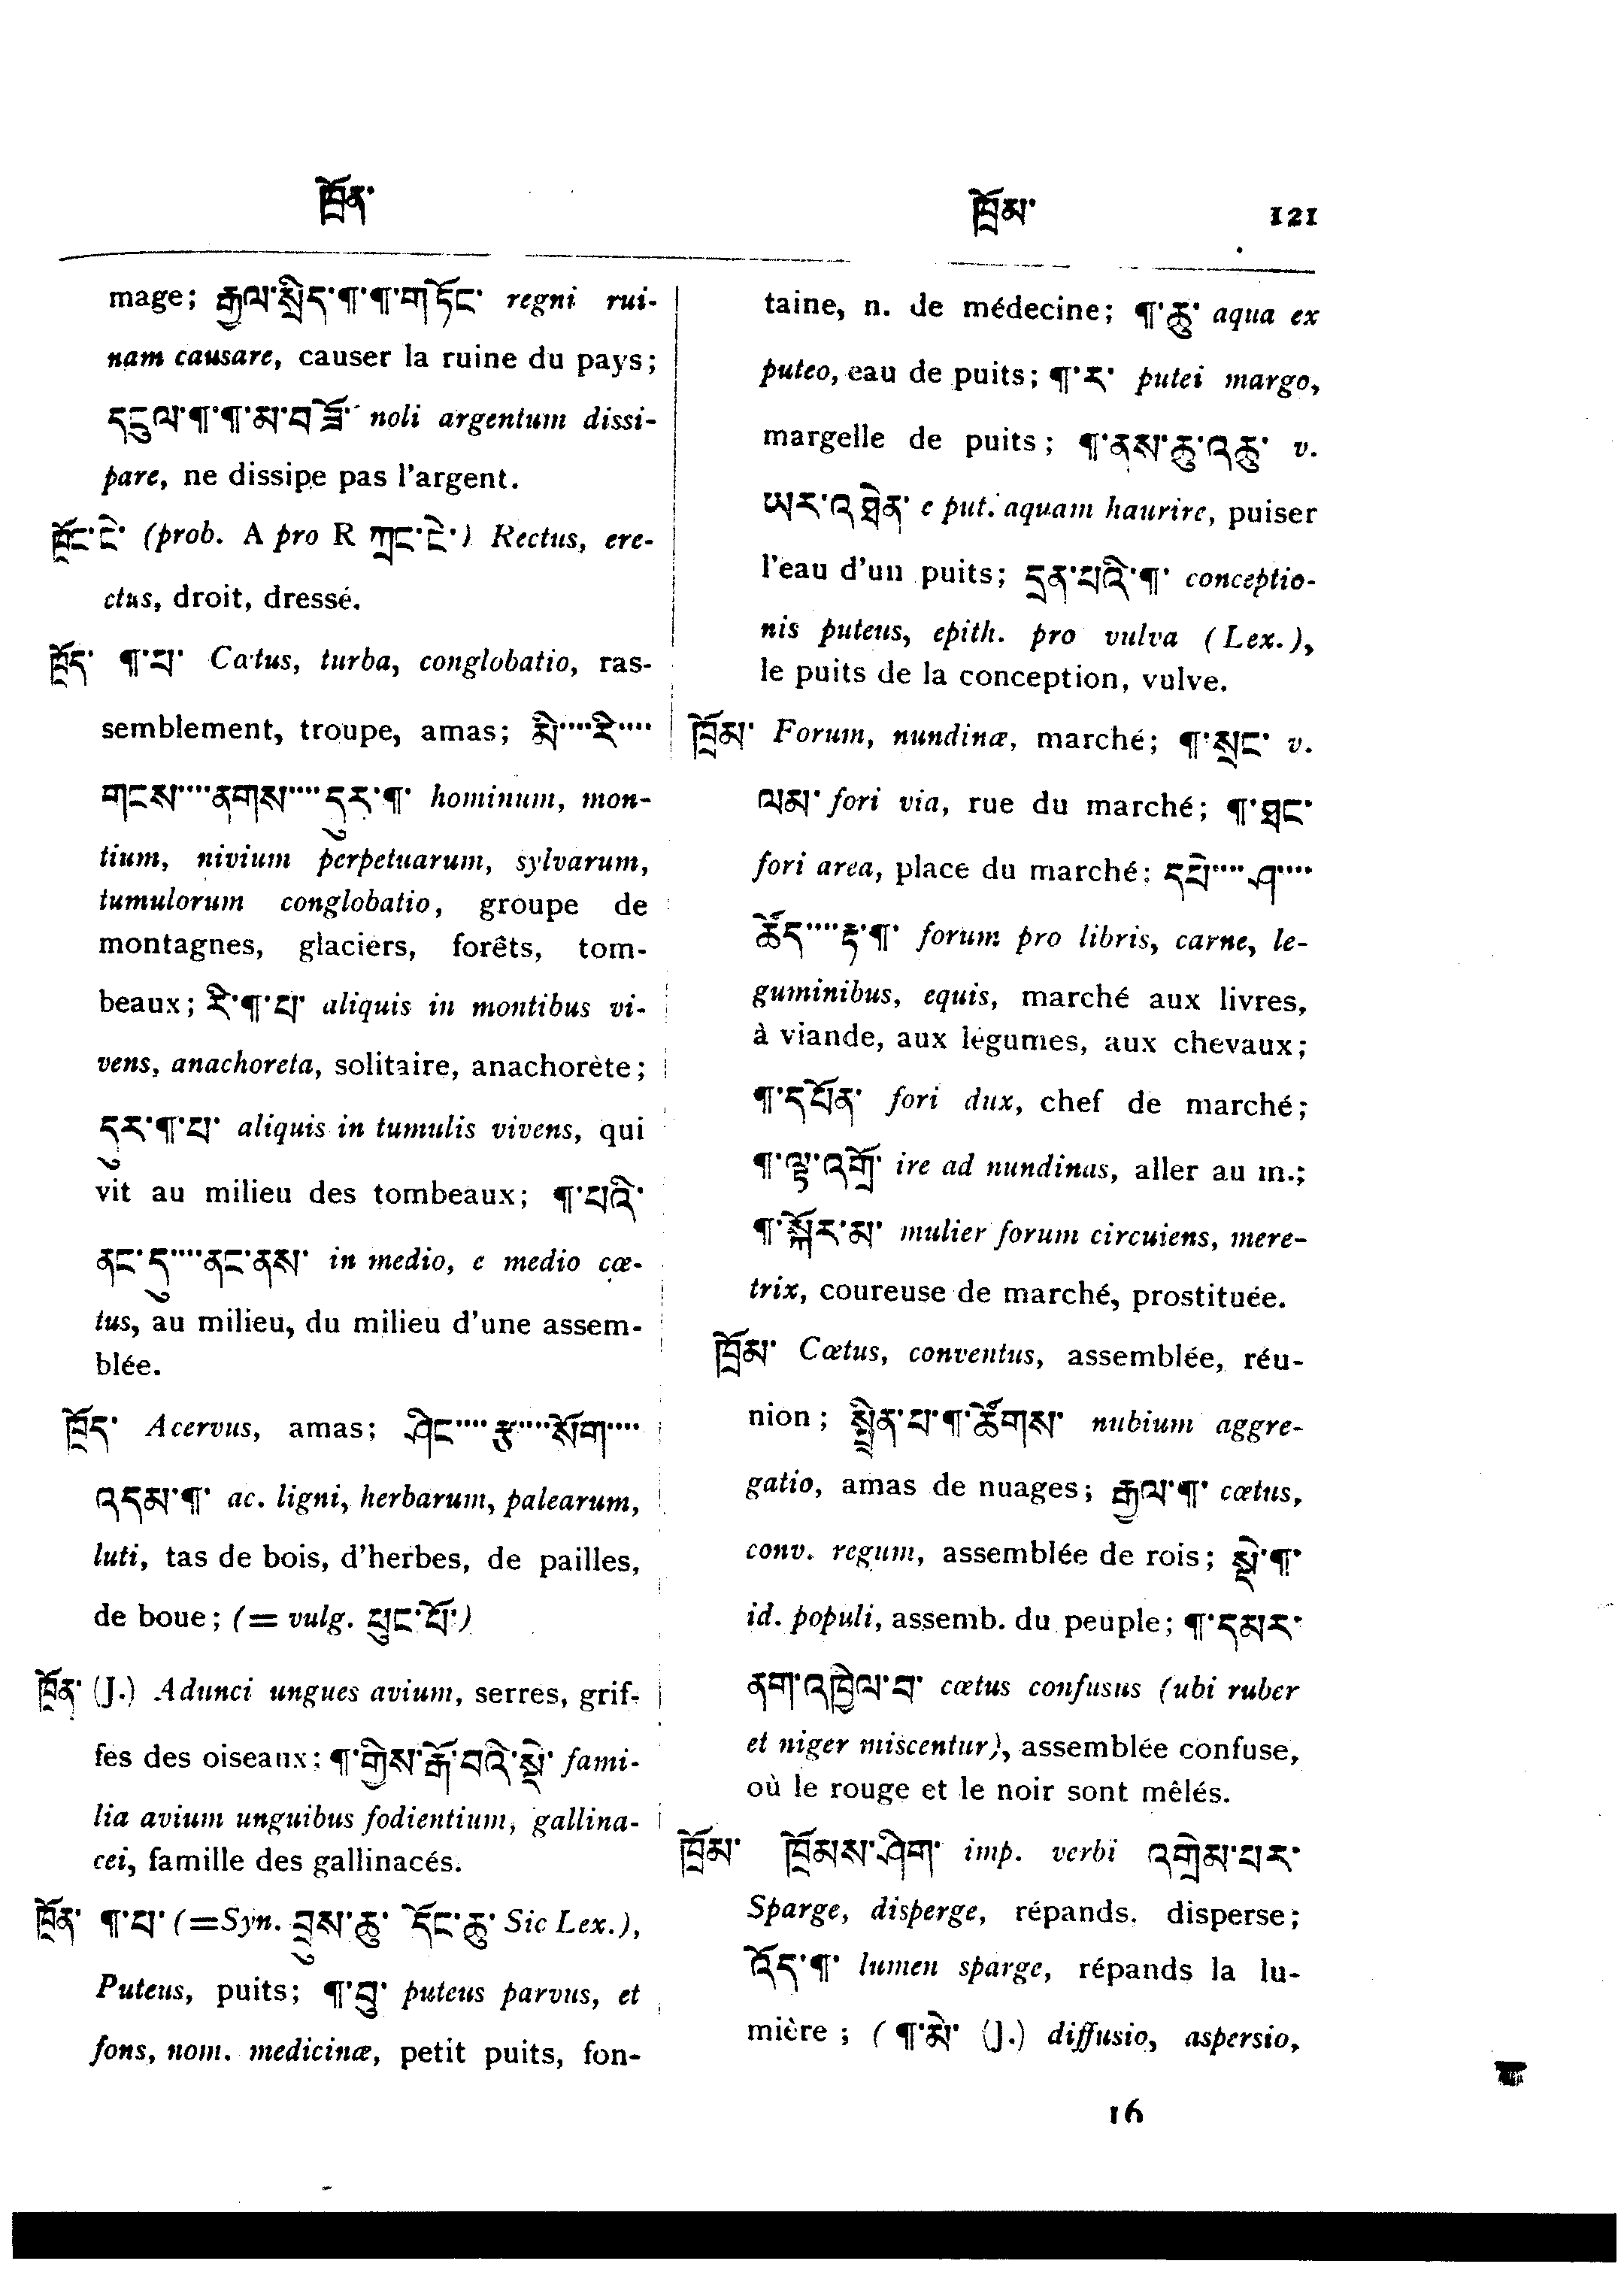 ཁྲོན་
ཁྲོམ་ 121
mage; རྒྱལ་སྲིད་¶་¶་གཏོང་ regni rui-
nam causare, causer la ruine du pays;
དངུལ་¶་¶་མ་བཟོ་ noli argentum dissi-
pare, ne dissipe pas l'argent.
ཁྲོང་ངེ་ (prob. A pro R ཀྲང་ངེ་) Rectus, ere-
ctus, droit, dressé.
ཁྲོད་ ¶་པ་ Cœtus, turba, conglobatio, ras-
semblement, troupe, amas; མི་····རི་····
གངས་····ནགས་····དུར་¶་ hominum, mon-
tium, nivium perpetuarum, sylvarum,
tumulorum conglobatio, groupe de
montagnes, glaciers, forêts, tom-
beaux; རི་¶་པ་ aliquis in montibus vi-
vens, anachoreta, solitaire, anachorète;
དུར་¶་པ་ aliquis in tumulis vivens, qui
vit au milieu des tombeaux; ¶་པའི་
ནང་དུ་····ནང་ནས་ in medio, e medio cœ-
tus, au milieu, du milieu d'une assem-
blée.
ཁྲོད་ Acervus, amas; ཤིང་····རྩྭ་····སོག་····
འདམ་¶་ ac. ligni, herbarum, palearum,
luti, tas de bois, d'herbes, de pailles,
de boue; (= vulg. ཕུང་པོ་)
ཁྲོན་ (J.) Adunci ungues avium, serres, grif-
fes des oiseaux; ¶་གྱིས་རྒོ་བའི་སྡེ་ fami-
lia avium unguibus fodientium, gallina-
cei, famille des gallinacés.
ཁྲོན་ ¶་པ་ (=Syn. བྲུས་ཆུ་ དོང་ཆུ་ Sic Lex.),
Puteus, puits; ¶་བུ་ puteus parvus, et
fons, nom. medicinæ, petit puits, fon-
taine, n. de médecine; ¶་ཆུ་ aqua ex
puteo, eau de puits; ¶་ར་ putei margo,
margelle de puits; ¶་ནས་ཆུ་འཆུ་ v.
ཡར་འཐེན་ e put. aquam haurire, puiser
l'eau d'un puits; དྲན་པའི་¶་ conceptio-
nis puteus, epith. pro vulva (Lex.),
le puits de la conception, vulve.
ཁྲོམ་ Forum, nundinæ, marché; ¶་སྲང་ v.
ལམ་ fori via, rue du marché; ¶་ཐང་
fori area, place du marché; དཔེ་····ཤ་····
ཚོད་····རྟ་¶་ forum pro libris, carne, le-
guminibus, equis, marché aux livres,
à viande, aux légumes, aux chevaux;
¶་དཔོན་ fori dux, chef de marché;
¶་ལྟ་འགྲོ་ ire ad nundinas, aller au m.;
¶་སྐོར་མ་ mulier forum circuiens, mere-
trix, coureuse de marché, prostituée.
ཁྲོམ་ Cœtus, conventus, assemblée, réu-
nion; སྤྲིན་པ་¶་ཚོགས་ nubium aggre-
gatio, amas de nuages; རྒྱལ་¶་ cœtus,
conv. regum, assemblée de rois; སྡེ་¶་
id. populi, assemb. du peuple; ¶་དམར་
ནག་འཁྱིལ་བ་ cœtus confusus (ubi ruber
et niger miscentur), assemblée confuse,
où le rouge et le noir sont mêlés.
ཁྲོམ་ ཁྲོམས་ཤིག་ imp. verbi འགྲེམ་པར་
Sparge, disperge, répands, disperse;
འོད་¶་ lumen sparge, répands la lu-
mière; (¶་མེ་ (J.) diffusio, aspersio,
16